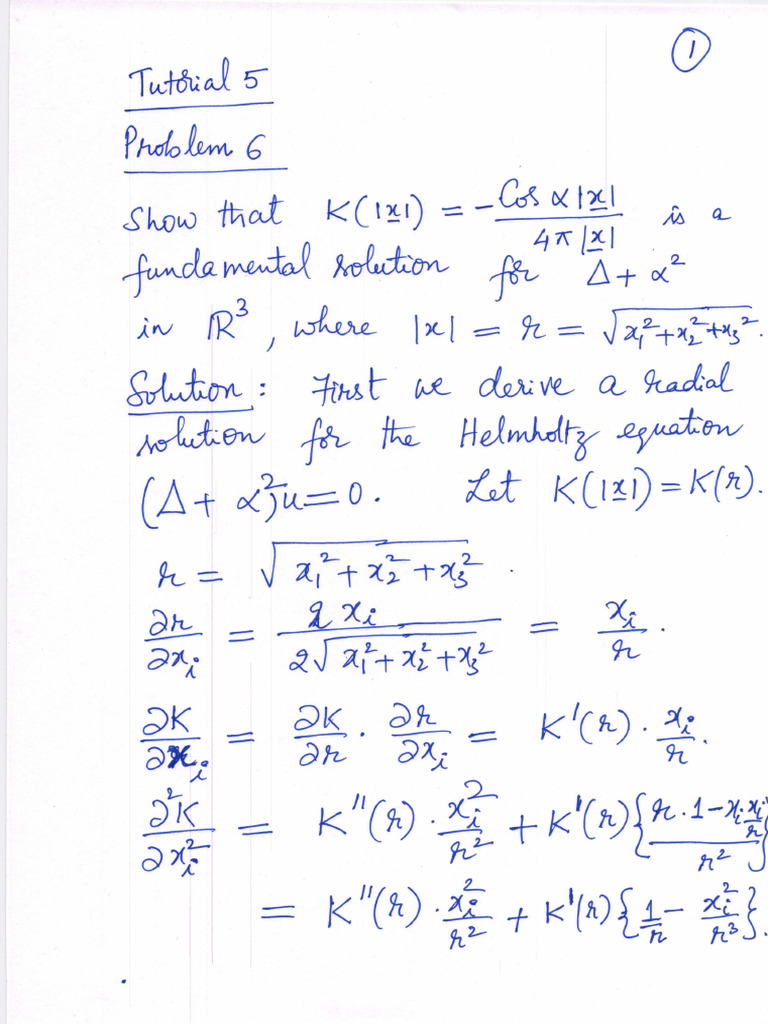 ①
Tutorial 5
Problem 6
Show that K(|x|) = -Cos α|x| / 4π|x| is a
fundamental solution for Δ + α²
in ℝ³, where |x| = r = √(x₁²+x₂²+x₃²).
Solution : First we derive a radial
solution for the Helmholtz equation
(Δ + α²)u=0. Let K(|x|) = K(r).
r = √(x₁²+x₂²+x₃²) .
∂r/∂xᵢ = 2xᵢ / 2√(x₁²+x₂²+x₃²) = xᵢ/r .
∂K/∂xᵢ = ∂K/∂r · ∂r/∂xᵢ = K'(r) · xᵢ/r .
∂²K/∂xᵢ² = K''(r) · xᵢ²/r² + K'(r){(r·1 - xᵢ·xᵢ/r)/r²}
= K''(r) · xᵢ²/r² + K'(r){1/r - xᵢ²/r³}.